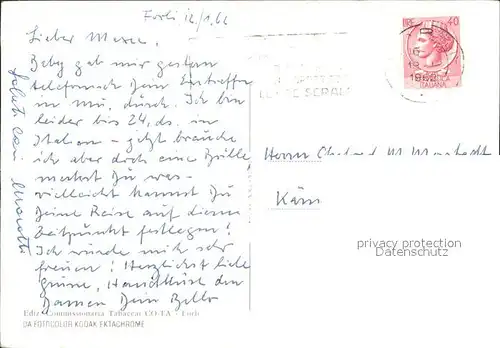 Forli 12/1.62
Lieber
Beby gab mir gestern
telefonisch Dein Eintreffen
in Mü. durch. Ich bin
leider bis 24. ds. in
Italien - jetzt brauche
ich aber doch eine Brille,
merkst Du was -
vielleicht kannst Du
Deine Reise auf diesen
Zeitpunkt festlegen!
Ich würde mich sehr
freuen! Herzlichst liebe
Grüsse, Handküsse den
Damen Dein
Saluti cari
Herrn
Köln
40
1962
ITALIANA
SERALI
privacy protection
Datenschutz
Ediz. Commissionaria Tabaccai CO-TA - Forlì
DA FOTOCOLOR KODAK EKTACHROME